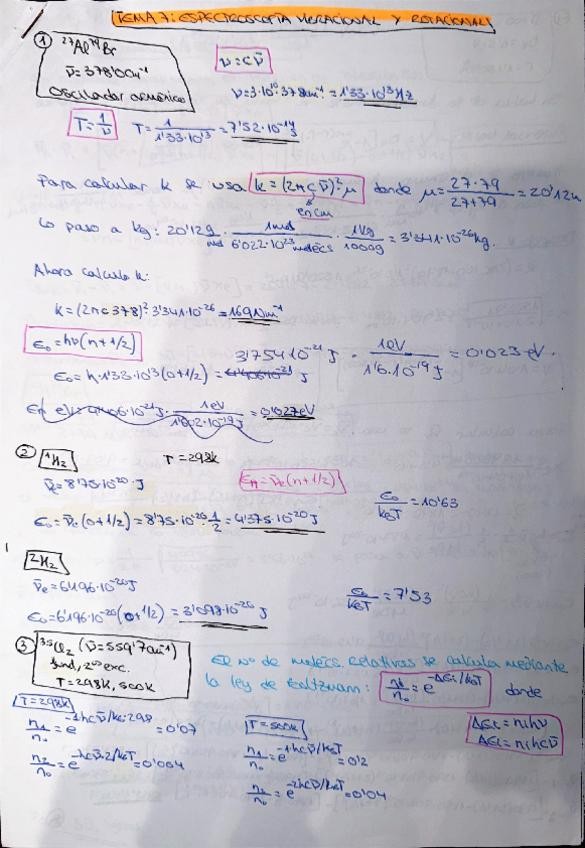 TEMA 7: ESPECTROSCOPÍA VIBRACIONAL Y ROTACIONAL
① ²⁷Al⁷⁹Br
ν̄ = 378'00cm⁻¹
Oscilador armónico
ν = cν̄
ν = 3·10¹⁰·378cm⁻¹ = 1'33·10¹³Hz
T = 1/ν T = 1/1'33·10¹³ = 7'52·10⁻¹⁴s
Para calcular k se usa k = (2πcν̄)²·μ donde μ = 27·79/27+79 = 20'12u
en cm
Lo paso a kg: 20'12g/mol · 1mol/6'022·10²³molécs · 1kg/1000g = 3'341·10⁻²⁶kg.
Ahora calculo k:
k = (2πc378)²·3'341·10⁻²⁶ = 169Nm⁻¹
ε₀ = hν(n+1/2)
3'754·10⁻²¹J · 1eV/1'6·10⁻¹⁹J = 0'023eV.
ε₀ = h·1'33·10¹³(0+1/2) = 4'406·10⁻²¹J
En eV: 4'406·10⁻²¹J · 1eV/1'602·10⁻¹⁹J = 0'027eV
② ¹H₂ T = 298k
ν̄e = 8'75·10⁻²⁰J
εn = ν̄e(n+1/2)
ε₀/kBT = 10'63
ε₀ = ν̄e(0+1/2) = 8'75·10⁻²⁰·1/2 = 4'375·10⁻²⁰J
²H₂
ν̄e = 6'196·10⁻²⁰J
ε₀/kBT = 7'53
ε₀ = 6'196·10⁻²⁰(0+1/2) = 3'098·10⁻²⁰J
③ ³⁵Cl₂ (ν̄ = 559'7cm⁻¹)
fund, 2os exc.
T = 298k, 500k
El nº de molécs. relativas se calcula mediante
la ley de Boltzmann: ni/n₀ = e^-ΔEi/kBT donde
ΔEi = nihν
ΔEi = nihcν̄
T = 298k
n₁/n₀ = e^-1hcν̄/kB·298 = 0'07
n₂/n₀ = e^-hcν̄·2/kBT = 0'004
T = 500k
n₁/n₀ = e^-1hcν̄/kBT = 0'2
n₂/n₀ = e^-2hcν̄/kBT = 0'04